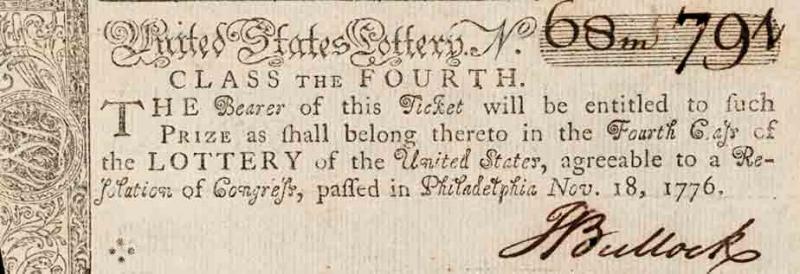 United States Lottery. No. 68m 791
CLASS THE FOURTH.
THE Bearer of this Ticket will be entitled to ſuch
PRIZE as ſhall belong thereto in the Fourth Claſs of
the LOTTERY of the United States, agreeable to a Re-
ſolution of Congreſs, paſſed in Philadelphia Nov. 18, 1776.
JBullock